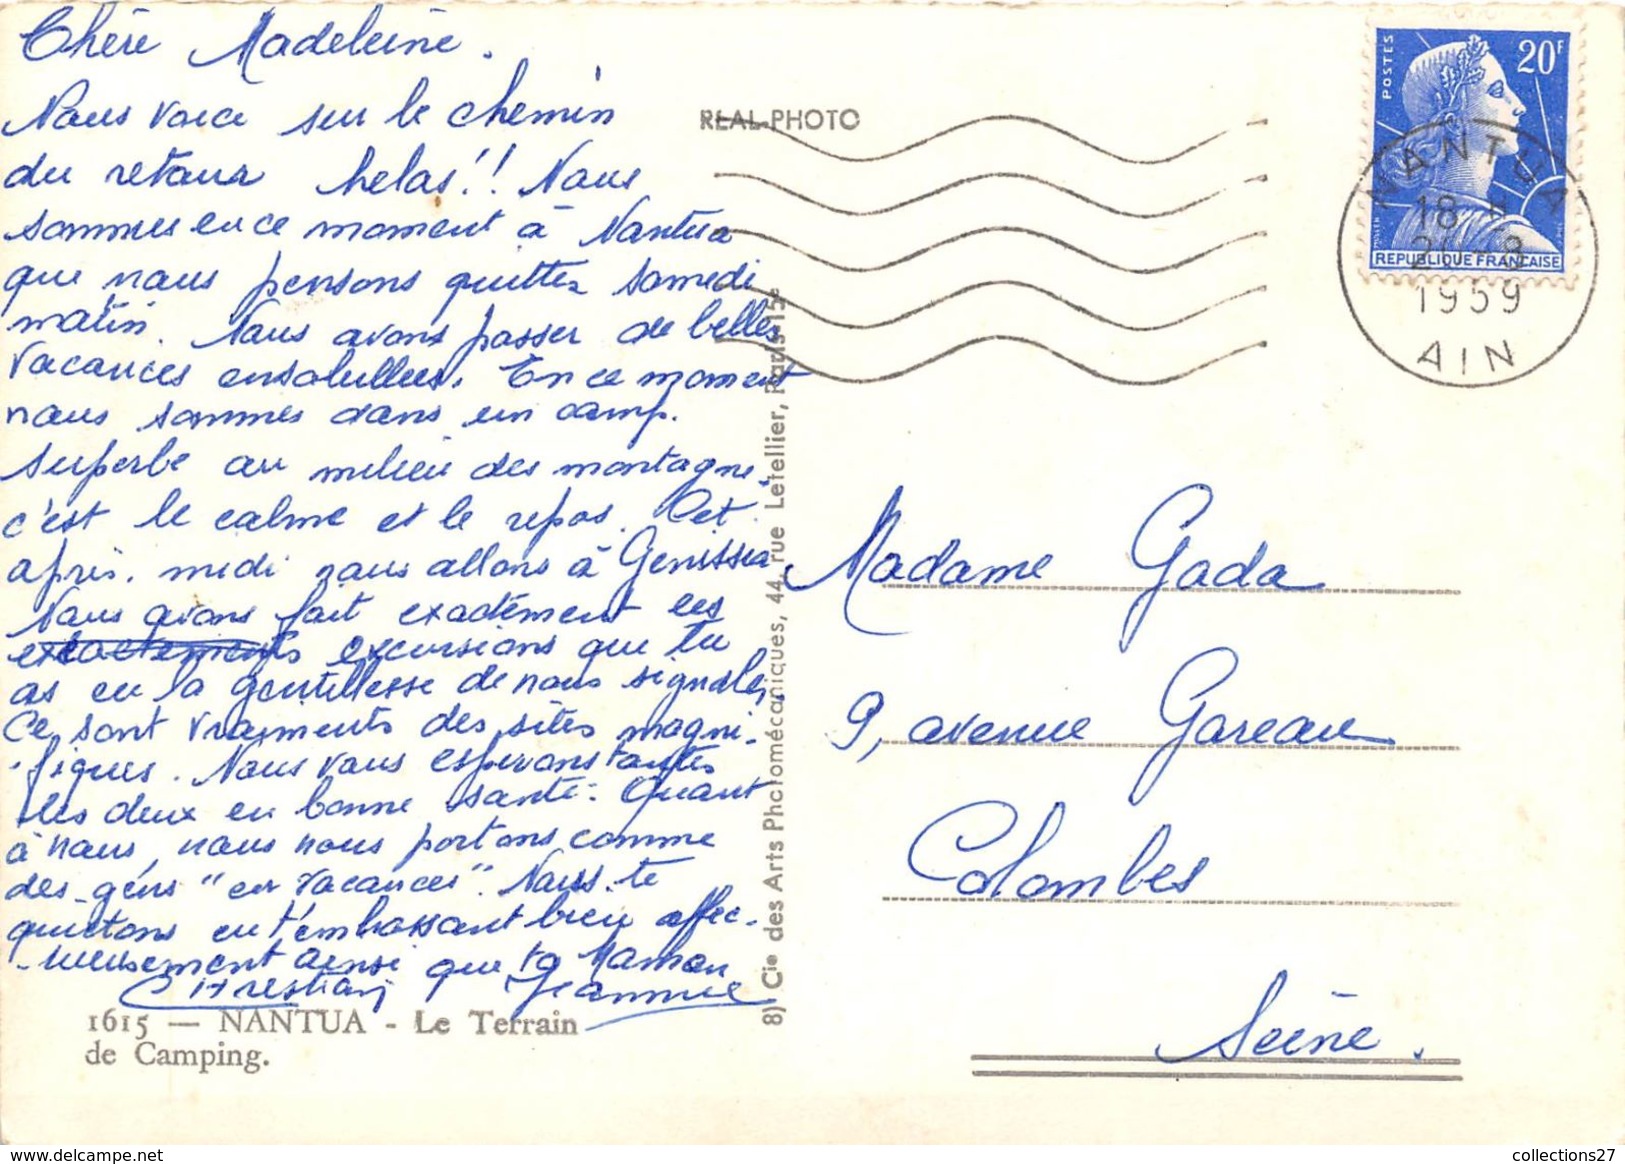 Chère Madeleine.
Nous voici sur le chemin
du retour helas!! Nous
sommes en ce moment à Nantua
que nous pensons quitter samedi
matin. Nous avons passer de belles
vacances ensoleillées. En ce moment
nous sommes dans un camp.
superbe au milieu des montagne.
c'est le calme et le repos. Cet
après-midi nous allons à Genissia
Nous avons fait exactement les
exactements excursions que tu
as eu la gentillesse de nous signaler.
Ce sont vraiments des sites magni-
-fiques. Nous vous esperons toutes
les deux en bonne santé. Quant
à nous, nous nous portons comme
des gens "en vacances". Nous te
quittons en t'embrassant bien affec-
-tueusement ainsi que ta Maman
Christian Jeannine
1615 — NANTUA - Le Terrain
de Camping.
REAL-PHOTO
8) Cie des Arts Photomécaniques, 44, rue Letellier, Paris-15e
POSTES
20F
REPUBLIQUE FRANCAISE
NANTUA
18 H
1959
AIN
Madame Gada
9, avenue Gareau
Colombes
Seine.
collections27